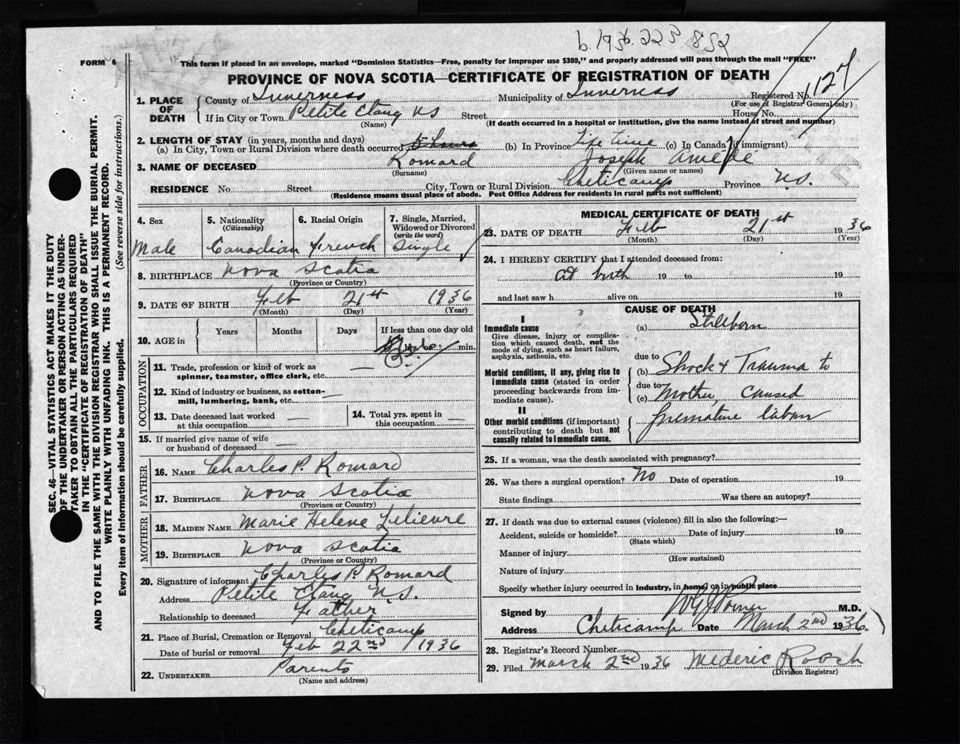 b. 1936. 223 852
FORM 6
This form if placed in an envelope, marked "Dominion Statistics—Free, penalty for improper use $300," and properly addressed will pass through the mail "FREE"
PROVINCE OF NOVA SCOTIA—CERTIFICATE OF REGISTRATION OF DEATH
127
1. PLACE OF DEATH
County of Inverness Municipality of Inverness Registered No.
(For use of Registrar General only)
If in City or Town Petite Etang NS Street House No.
(Name) (If death occurred in a hospital or institution, give the name instead of street and number)
2. LENGTH OF STAY (in years, months and days)
(a) In City, Town or Rural Division where death occurred (b) In Province Life time (c) In Canada (if immigrant)
3. NAME OF DECEASED Romard Joseph Amedé
(Surname) (Given name or names)
RESIDENCE No. Street City, Town or Rural Division Cheticamp Province N.S.
(Residence means usual place of abode. Post Office Address for residents in rural parts not sufficient)
4. Sex 5. Nationality (Citizenship) 6. Racial Origin 7. Single, Married, Widowed or Divorced (write the word)
Male Canadian French Single
8. BIRTHPLACE Nova Scotia
(Province or Country)
9. DATE OF BIRTH Feb 21st 1936
(Month) (Day) (Year)
10. AGE in Years Months Days If less than one day old
min.
OCCUPATION
11. Trade, profession or kind of work as spinner, teamster, office clerk, etc. —
12. Kind of industry or business, as cotton-mill, lumbering, bank, etc. —
13. Date deceased last worked at this occupation — 14. Total yrs. spent in this occupation —
15. If married give name of wife or husband of deceased
FATHER
16. NAME Charles P. Romard
17. BIRTHPLACE Nova Scotia
(Province or Country)
MOTHER
18. MAIDEN NAME Marie Helene Lelievre
19. BIRTHPLACE Nova Scotia
(Province or Country)
20. Signature of informant Charles P. Romard
Address Petite Etang N.S.
Relationship to deceased Father
21. Place of Burial, Cremation or Removal Cheticamp
Date of burial or removal Feb 22nd 1936
22. UNDERTAKER Parents
(Name and address)
MEDICAL CERTIFICATE OF DEATH
23. DATE OF DEATH Feb 21st 1936
(Month) (Day) (Year)
24. I HEREBY CERTIFY that I attended deceased from:
at birth 19 to 19
and last saw h alive on 19
CAUSE OF DEATH
I
Immediate cause (a) Stillborn
Give disease, injury or complication which caused death, not the mode of dying, such as heart failure, asphyxia, asthenia, etc.
due to
Morbid conditions, if any, giving rise to immediate cause (stated in order proceeding backwards from immediate cause).
(b) Shock & Trauma to
due to
(c) Mother, caused
II
Other morbid conditions (if important) contributing to death but not causally related to immediate cause.
premature labour
25. If a woman, was the death associated with pregnancy?
26. Was there a surgical operation? No Date of operation 19
State findings Was there an autopsy?
27. If death was due to external causes (violence) fill in also the following:—
Accident, suicide or homicide? Date of injury 19
(State which)
Manner of injury
(How sustained)
Nature of injury
Specify whether injury occurred in industry, in home, or in public place
Signed by M.D.
Address Cheticamp Date March 2nd 1936.
28. Registrar's Record Number
29. Filed March 2nd 1936 Mederic Roach
(Division Registrar)
SEC. 46—VITAL STATISTICS ACT MAKES IT THE DUTY
OF THE UNDERTAKER OR PERSON ACTING AS UNDER-
TAKER TO OBTAIN ALL THE PARTICULARS REQUIRED
IN THE "CERTIFICATE OF REGISTRATION OF DEATH"
AND TO FILE THE SAME WITH THE DIVISION REGISTRAR WHO SHALL ISSUE THE BURIAL PERMIT.
WRITE PLAINLY WITH UNFADING INK. THIS IS A PERMANENT RECORD.
Every item of information should be carefully supplied. (See reverse side for instructions.)